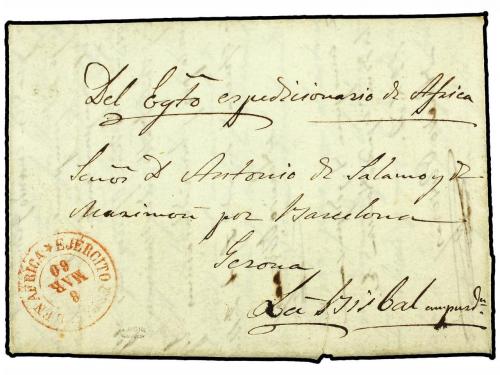 Del Egto espedicionario de Africa
Señor D Antonio de Salamo y de
Maximon por Barcelona
Gerona
La Bisbal ampurdn
EJERCITO
EN AFRICA
8
MAR
60